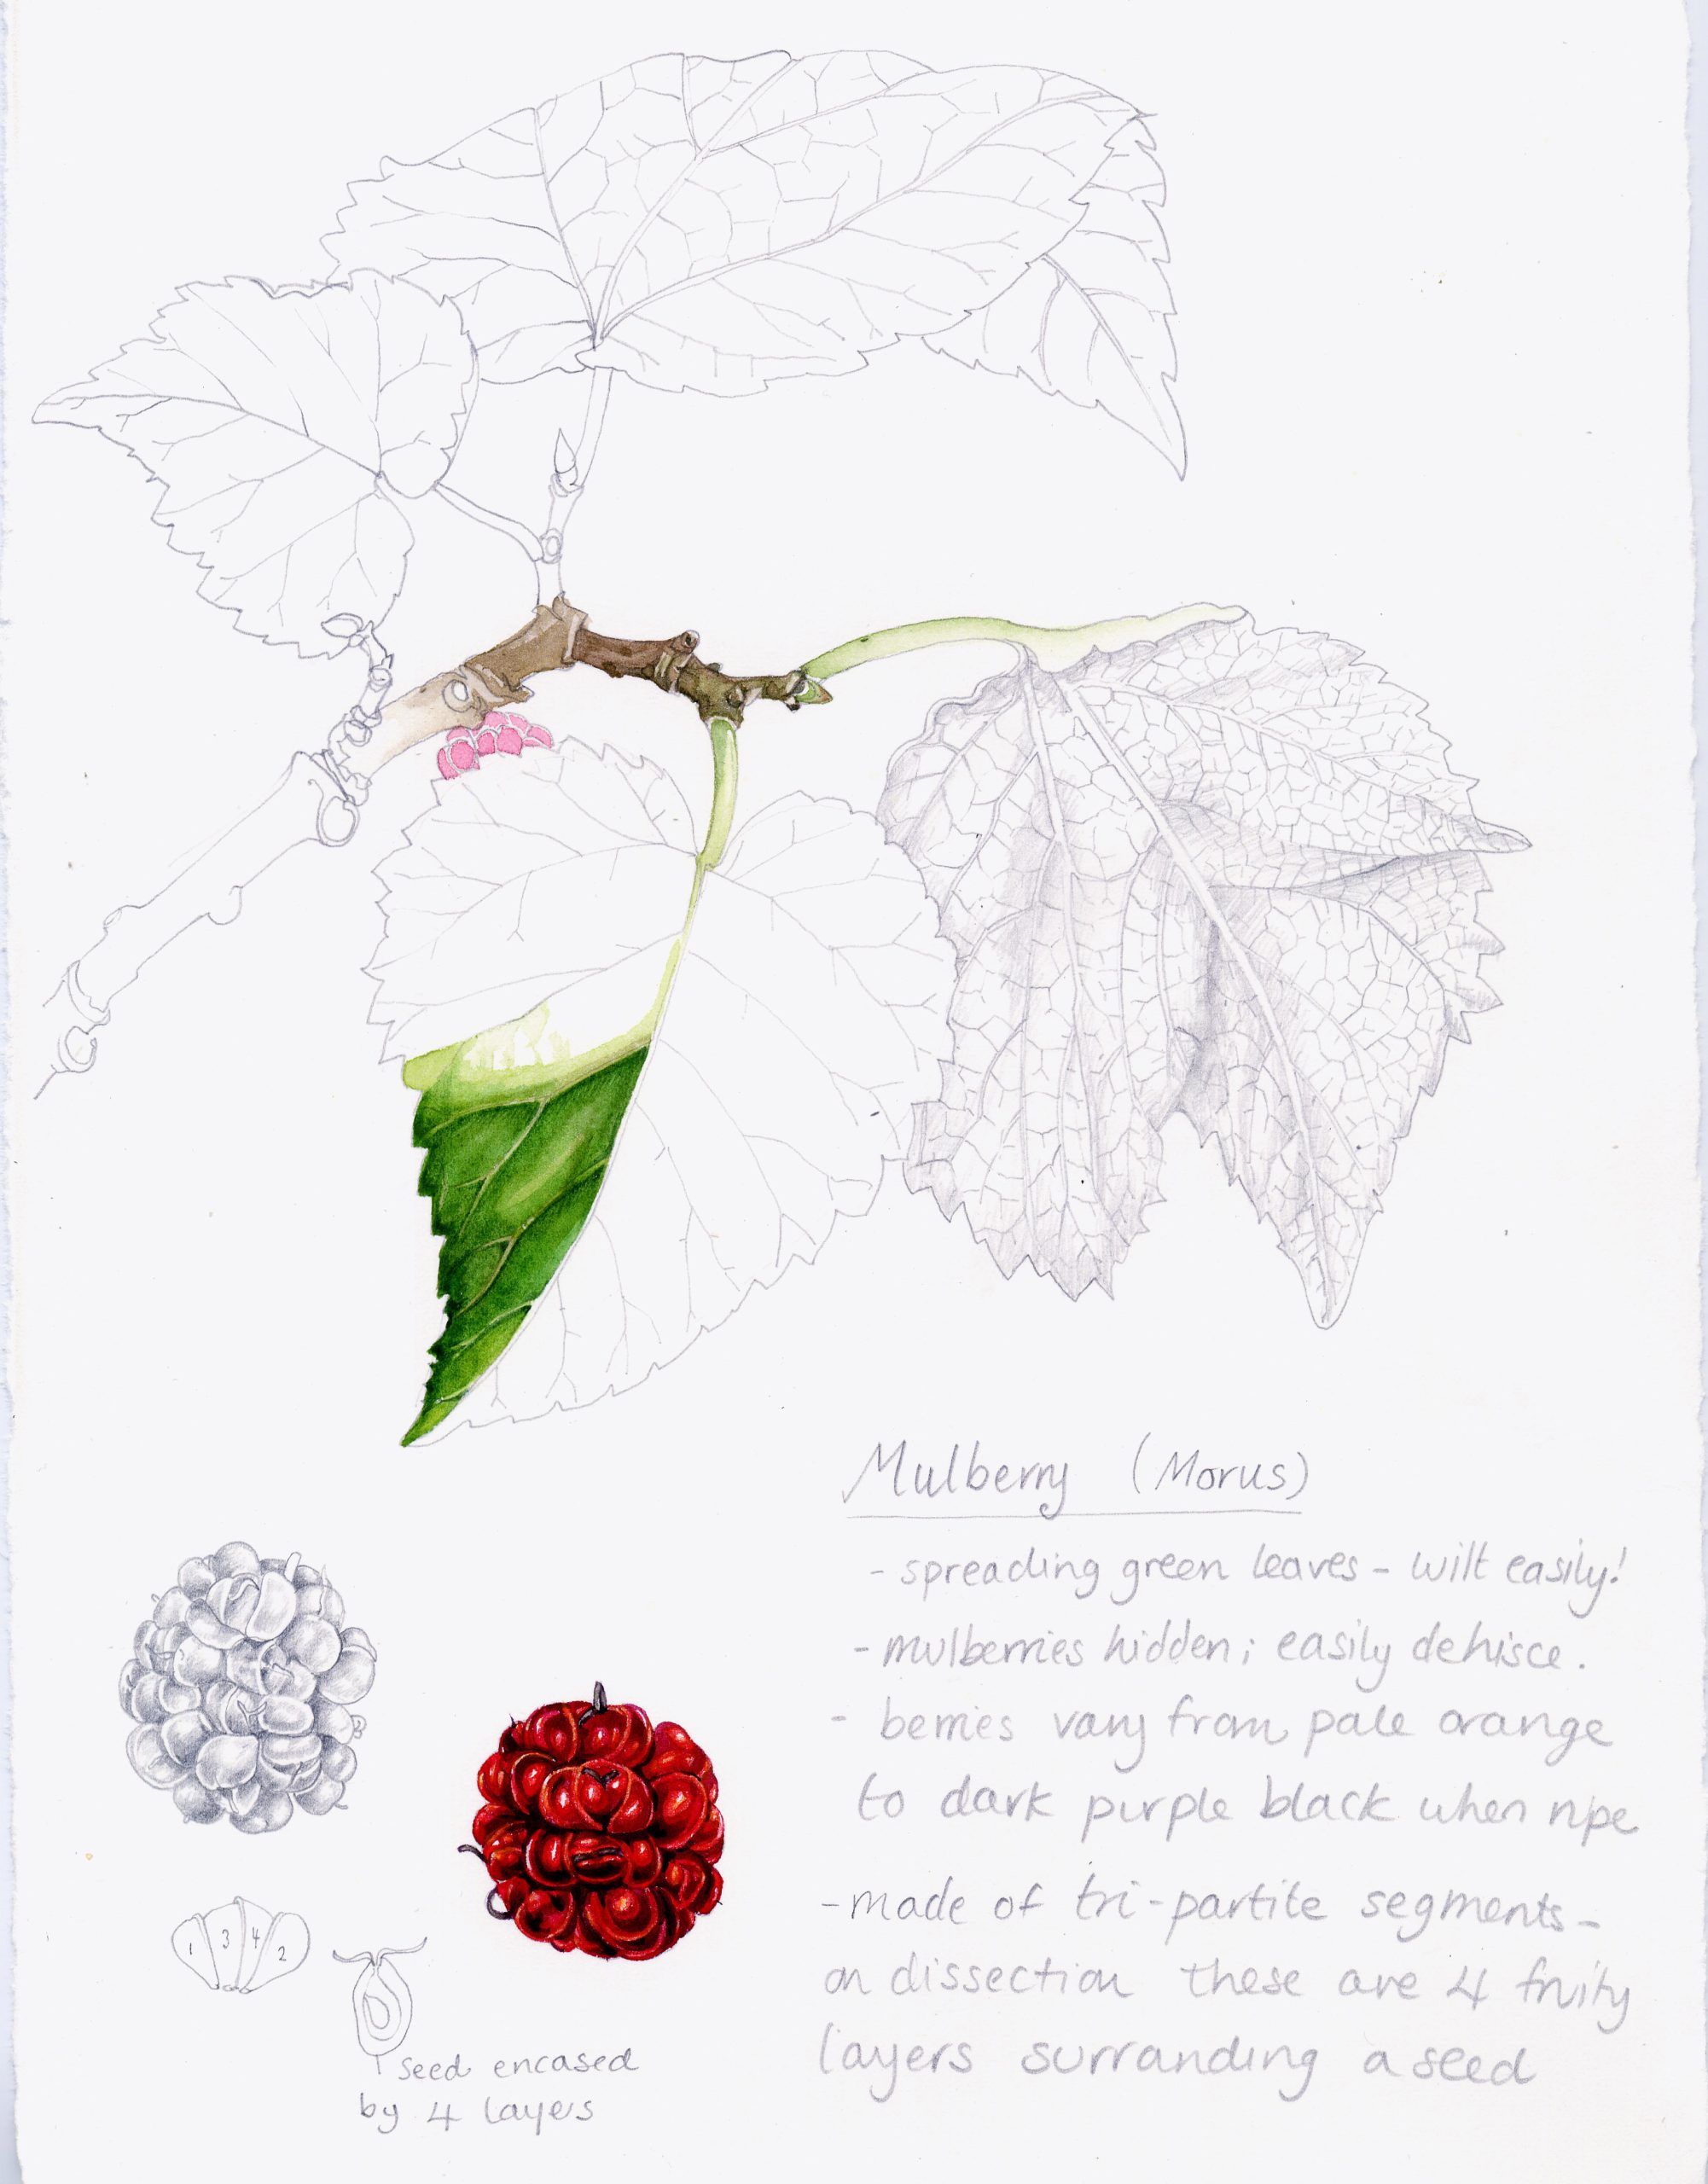 Mulberry (Morus)
- spreading green leaves - wilt easily!
- mulberries hidden; easily dehisce.
- berries vary from pale orange
to dark purple black when ripe
- made of tri-partite segments -
on dissection these are 4 fruity
layers surranding a seed
1 3 4 2
seed encased
by 4 layers